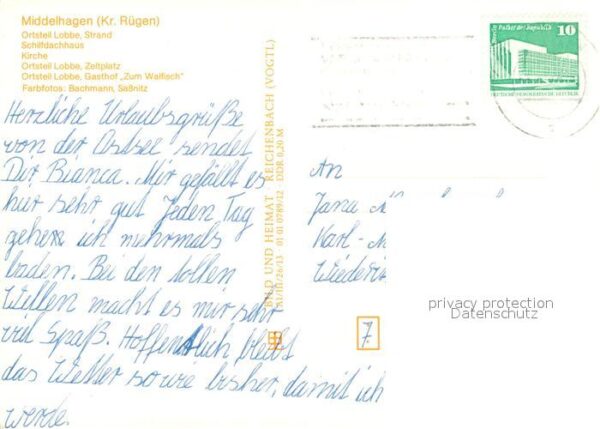 Middelhagen (Kr. Rügen)
Ortsteil Lobbe, Strand
Schilfdachhaus
Kirche
Ortsteil Lobbe, Zeltplatz
Ortsteil Lobbe, Gasthof „Zum Walfisch"
Farbfotos: Bachmann, Saßnitz
Herzliche Urlaubsgrüße
von der Ostsee sendet
Dir Bianca. Mir gefällt es
hier sehr gut Jeden Tag
gehe ich mehrmals
baden. Bei den tollen
Wellen macht es mir sehr
viel Spaß. Hoffentlich bleibt
das Wetter so wie bisher, damit ich
werde.
BILD UND HEIMAT REICHENBACH (VOGTL)
A1/III/26/13 01 01 0789/12 DDR 0,20 M
Berlin Palast der Republik
10
DEUTSCHE DEMOKRATISCHE REPUBLIK
An
Jana
Karl-
privacy protection
Datenschutz
7